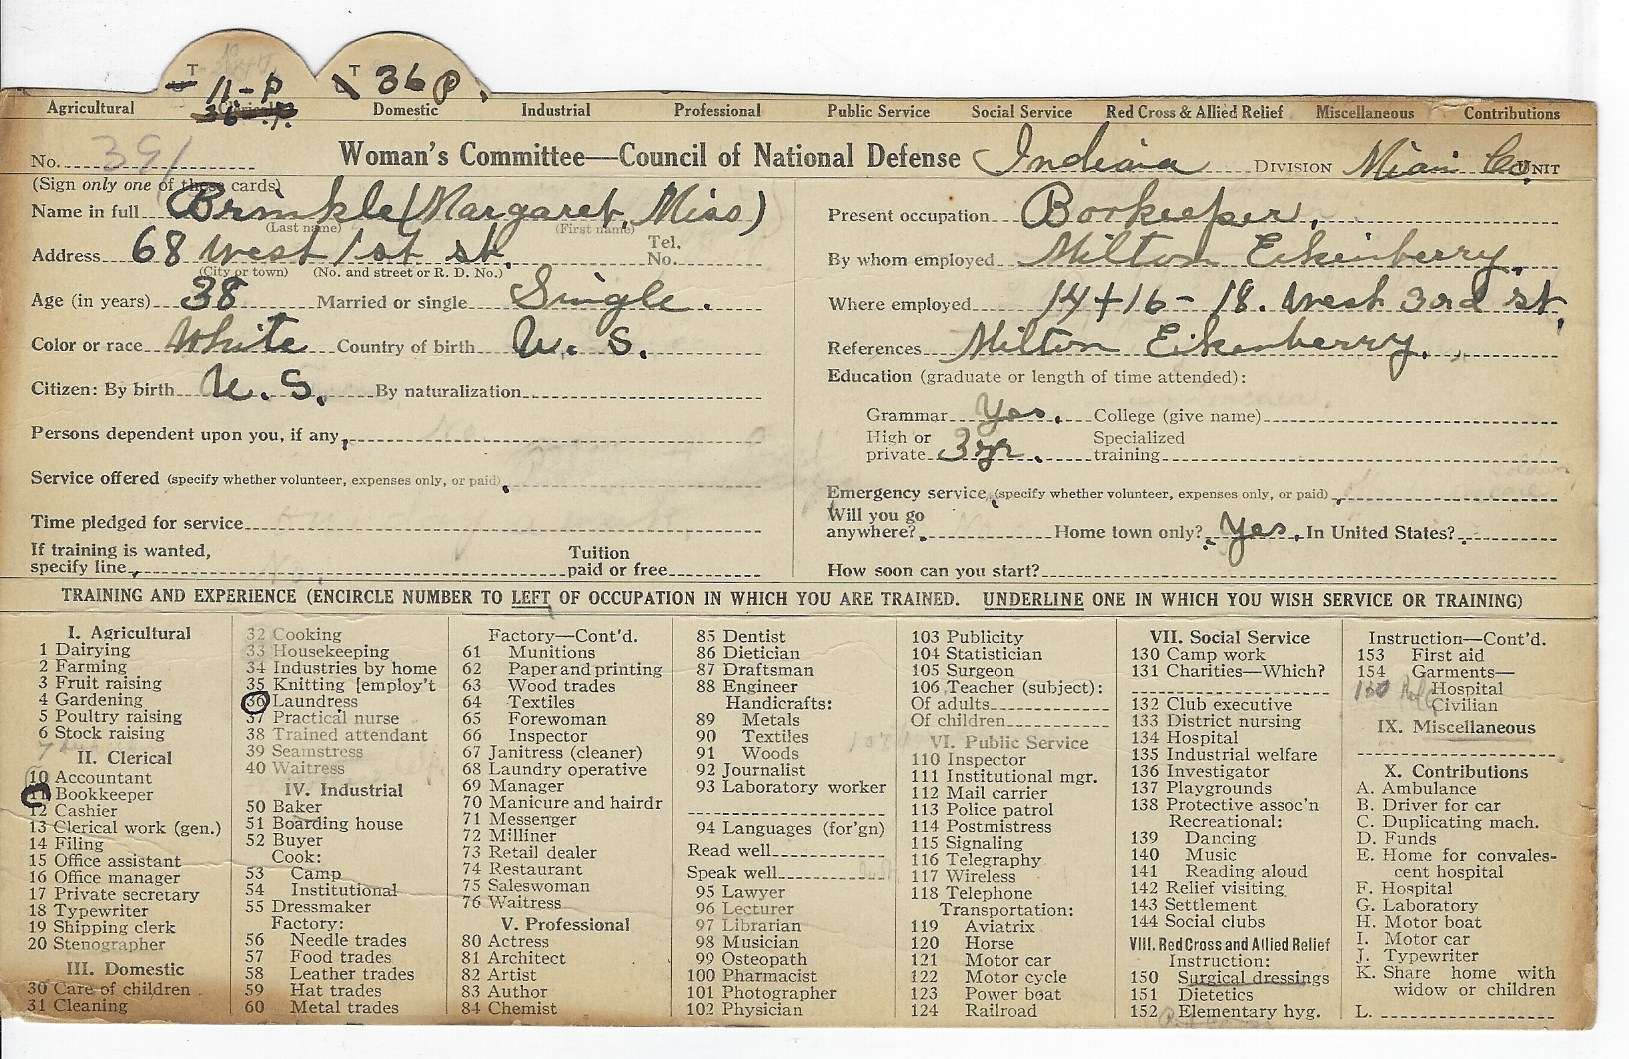 T 11-P T 36 P.
Agricultural Domestic Industrial Professional Public Service Social Service Red Cross & Allied Relief Miscellaneous Contributions
No. 391 Woman's Committee—Council of National Defense Indiana DIVISION Miami Co. UNIT
(Sign only one of these cards)
Name in full Brinkle (Margaret, Miss)
(Last name) (First name)
Address 68 West 1st st. Tel. No.
(City or town) (No. and street or R. D. No.)
Age (in years) 38 Married or single Single.
Color or race White Country of birth U. S.
Citizen: By birth U. S. By naturalization
Persons dependent upon you, if any, No
Service offered (specify whether volunteer, expenses only, or paid)
Time pledged for service
If training is wanted, specify line No. Tuition paid or free
Present occupation Bookeeper.
By whom employed Milton Eikenberry.
Where employed 14+16-18. West 3rd st.
References Milton Eikenberry.
Education (graduate or length of time attended):
Grammar Yes. College (give name)
High or private 3 yr. Specialized training
Emergency service (specify whether volunteer, expenses only, or paid)
Will you go anywhere? No Home town only? Yes. In United States?
How soon can you start?
TRAINING AND EXPERIENCE (ENCIRCLE NUMBER TO LEFT OF OCCUPATION IN WHICH YOU ARE TRAINED. UNDERLINE ONE IN WHICH YOU WISH SERVICE OR TRAINING)
I. Agricultural
1 Dairying
2 Farming
3 Fruit raising
4 Gardening
5 Poultry raising
6 Stock raising
II. Clerical
10 Accountant
11 Bookkeeper
12 Cashier
13 Clerical work (gen.)
14 Filing
15 Office assistant
16 Office manager
17 Private secretary
18 Typewriter
19 Shipping clerk
20 Stenographer
III. Domestic
30 Care of children
31 Cleaning
32 Cooking
33 Housekeeping
34 Industries by home
35 Knitting [employ't
36 Laundress
37 Practical nurse
38 Trained attendant
39 Seamstress
40 Waitress
IV. Industrial
50 Baker
51 Boarding house
52 Buyer
Cook:
53 Camp
54 Institutional
55 Dressmaker
Factory:
56 Needle trades
57 Food trades
58 Leather trades
59 Hat trades
60 Metal trades
Factory—Cont'd.
61 Munitions
62 Paper and printing
63 Wood trades
64 Textiles
65 Forewoman
66 Inspector
67 Janitress (cleaner)
68 Laundry operative
69 Manager
70 Manicure and hairdr
71 Messenger
72 Milliner
73 Retail dealer
74 Restaurant
75 Saleswoman
76 Waitress
V. Professional
80 Actress
81 Architect
82 Artist
83 Author
84 Chemist
85 Dentist
86 Dietician
87 Draftsman
88 Engineer
Handicrafts:
89 Metals
90 Textiles
91 Woods
92 Journalist
93 Laboratory worker
94 Languages (for'gn)
Read well
Speak well
95 Lawyer
96 Lecturer
97 Librarian
98 Musician
99 Osteopath
100 Pharmacist
101 Photographer
102 Physician
103 Publicity
104 Statistician
105 Surgeon
106 Teacher (subject):
Of adults
Of children
VI. Public Service
110 Inspector
111 Institutional mgr.
112 Mail carrier
113 Police patrol
114 Postmistress
115 Signaling
116 Telegraphy
117 Wireless
118 Telephone
Transportation:
119 Aviatrix
120 Horse
121 Motor car
122 Motor cycle
123 Power boat
124 Railroad
VII. Social Service
130 Camp work
131 Charities—Which?
132 Club executive
133 District nursing
134 Hospital
135 Industrial welfare
136 Investigator
137 Playgrounds
138 Protective assoc'n
Recreational:
139 Dancing
140 Music
141 Reading aloud
142 Relief visiting
143 Settlement
144 Social clubs
VIII. Red Cross and Allied Relief
Instruction:
150 Surgical dressings
151 Dietetics
152 Elementary hyg.
Instruction—Cont'd.
153 First aid
154 Garments—
Hospital
Civilian
IX. Miscellaneous
X. Contributions
A. Ambulance
B. Driver for car
C. Duplicating mach.
D. Funds
E. Home for convales-
cent hospital
F. Hospital
G. Laboratory
H. Motor boat
I. Motor car
J. Typewriter
K. Share home with
widow or children
L.